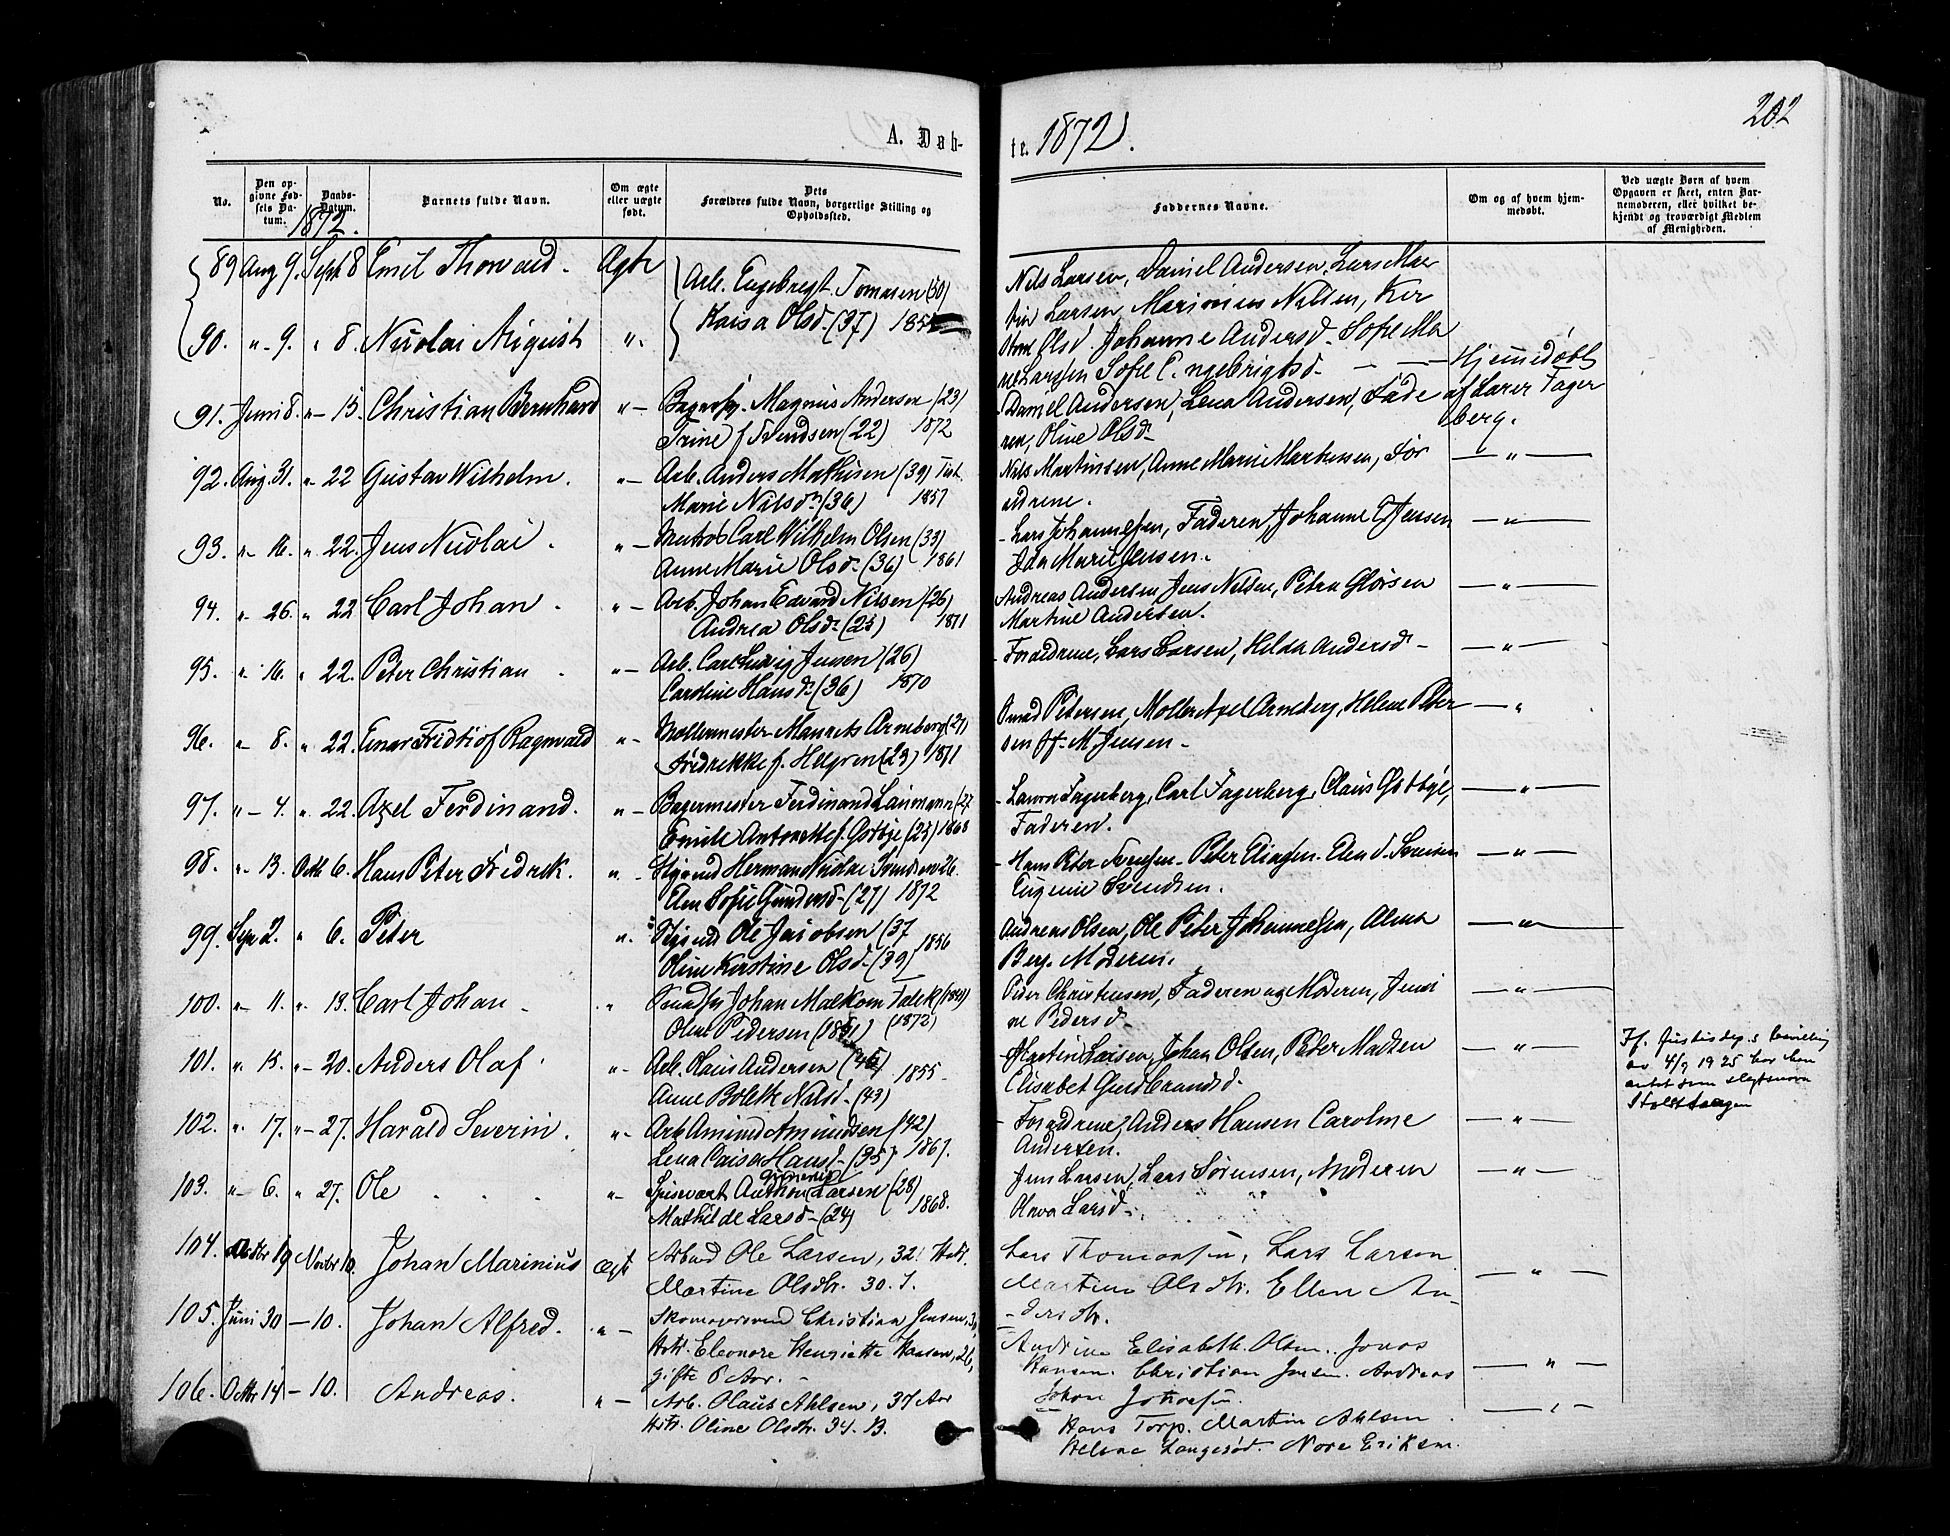 202
A. Døb-
te. 1872.
No.
Den op-
givne Fød-
sels Da-
tum.
Daabs-
Datum.
Barnets fulde Navn.
Om ægte
eller uægte
født.
Dets
Forældres fulde Navn, borgerlige Stilling og
Opholdssted.
Faddernes Navne.
Om og af hvem hjem-
medøbt.
Ved uægte Børn af hvem
Opgaven er skeet, enten Bar-
nemoderen, eller hvilket be-
kjendt og troværdigt Medlem
af Menigheden.
1872.
89 Aug 9. Sept 8 Emil Thorvald. Ægte
Arb. Engebregt Tomasen (50)
Kaisa Olsd. (37)
Nils Larsen, Daniel Andersen, Lars Mar
tin Larsen, Marinius Nilsen, Ker
90. " 9. " 8. Nicolai August "
stine Olsd Johanne Andersd. Sofie Ma
rie Larssen Sofie Engebrigtsd. —
Hjemmedøbt
af Lærer Fager
berg.
91. Juni 8. " 15. Christian Bernhard "
Magnus Andersen (23)
Trine f. Svendsen (22) 1872
Daniel Andersen, Lena Andersen, Fade
ren, Oline Olsd
92. Aug. 31. " 22 Gustav Wilhelm. "
Arb. Anders Mathisen (39)
Marie Nilsd (36) 1857
Nils Martinsen, Anne Marie Martinsen, For
ældrene. — " —
93. " 16. " 22. Jens Nicolai. "
Matros Carl Wilhelm Olsen (33)
Anne Marie Olsd (36) 1861
Lars Johannessen, Faderen, Johanne Jensen
Ida Marie Jensen. — " —
94. " 26. " 22 Carl Johan. "
Arb. Johan Edvard Nilsen (26)
Andrea Olsd. (25) 1871
Andreas Andersen, Jens Nilsen, Petra
Martine Andersen. — " —
95. " 16. " 22. Peter Christian "
Arb. Carl Ludvig Jensen (26)
Caroline Hansd. (36) 1870
Forældrene, Lars Larsen, Hilda Andersd — " —
96. " 8. " 22. Einar Fridtiof Ragnvald "
Møllermester Mauritz Arneberg (27)
Fredrikke f. Helgren (23) 1871
Petersen, Møller Axel Arneberg, Helene Peter
sen M. Jensen — " —
97. " 4. " 22. Axel Ferdinand. "
Bagermester Ferdinand (27
Emilie Antonette f. Gotbye (25) 1868
Laura Fagerberg, Carl Fagerberg, Claus Gotbye,
Faderen. — " —
98. " 13. Octb 6. Hans Peter Fredrik. "
Herman Nicolai Svendsen 26
Elen Sofie Gundersd. (27) 1872
Hans Peter Svensen, Peter Eliasen. Elen
Eugenie Svendsen. — " —
99. Sept 2. " 6. Peter "
Ole Jacobsen (37
Oline Kirstine Olsd (39) 1856
Andreas Olsen, Ole Peter Johannesen, Alma
Berg. Moderen. — " —
100. " 11. " 13. Carl Johan. "
Johan Malkom Falck
Oline Pedersen (1872)
Peter Christensen, Faderen og Moderen,
Pedersd — " —
101. " 15. " 20. Anders Olaf. "
Arb. Olaus Andersen
Anne Bolette Nilsd. (43) 1855
Martin Larsen, Johan Olsen, Peter Madsen
Elisabet Guldbrandsd. — " —
If. Justisdep.s bevilling
av 4/9 1925 har han
antat som slegtsnavn
102. " 17. " 27. Harald Severin. "
Arb. Amund Amundsen (42)
Lena Caisa Hansd. (35) 1867.
Forældrene, Anders Hansen Caroline
Andersen. — " —
103. " 6. " 27. Ole "
Anthon Larsen (28)
Mathilde Larsd (24) 1868.
Jens Larsen, Lars Sørensen, Moderen
Larsd. — " —
104. Octbr 19 Novbr 10. Johan Marinius Ægt
Arbmd Ole Larsen, 32.
Martine Olsdtr. 30.
Lars Thomassen, Lars Larsen
Martine Olsdtr. Ellen An-
dersdtr. — " —
105. Juni 30 — 10. Johan Alfred. "
Skomagersvend Christian Jensen,
Hstr. Eleonore Henriette Hansen, 26,
gifte 6 Aar.
Andrine Elisabeth Olsen. Jonas
Hansen. Christian Jensen. Andreas
— " —
106. Octbr 14 — 10. Andreas. "
Arb. Olaus Ahlsen, 37 Aar
Hstr. Oline Olsdtr. 34.
Hans Torp. Martin Ahlsen.
Nora Eriksen.